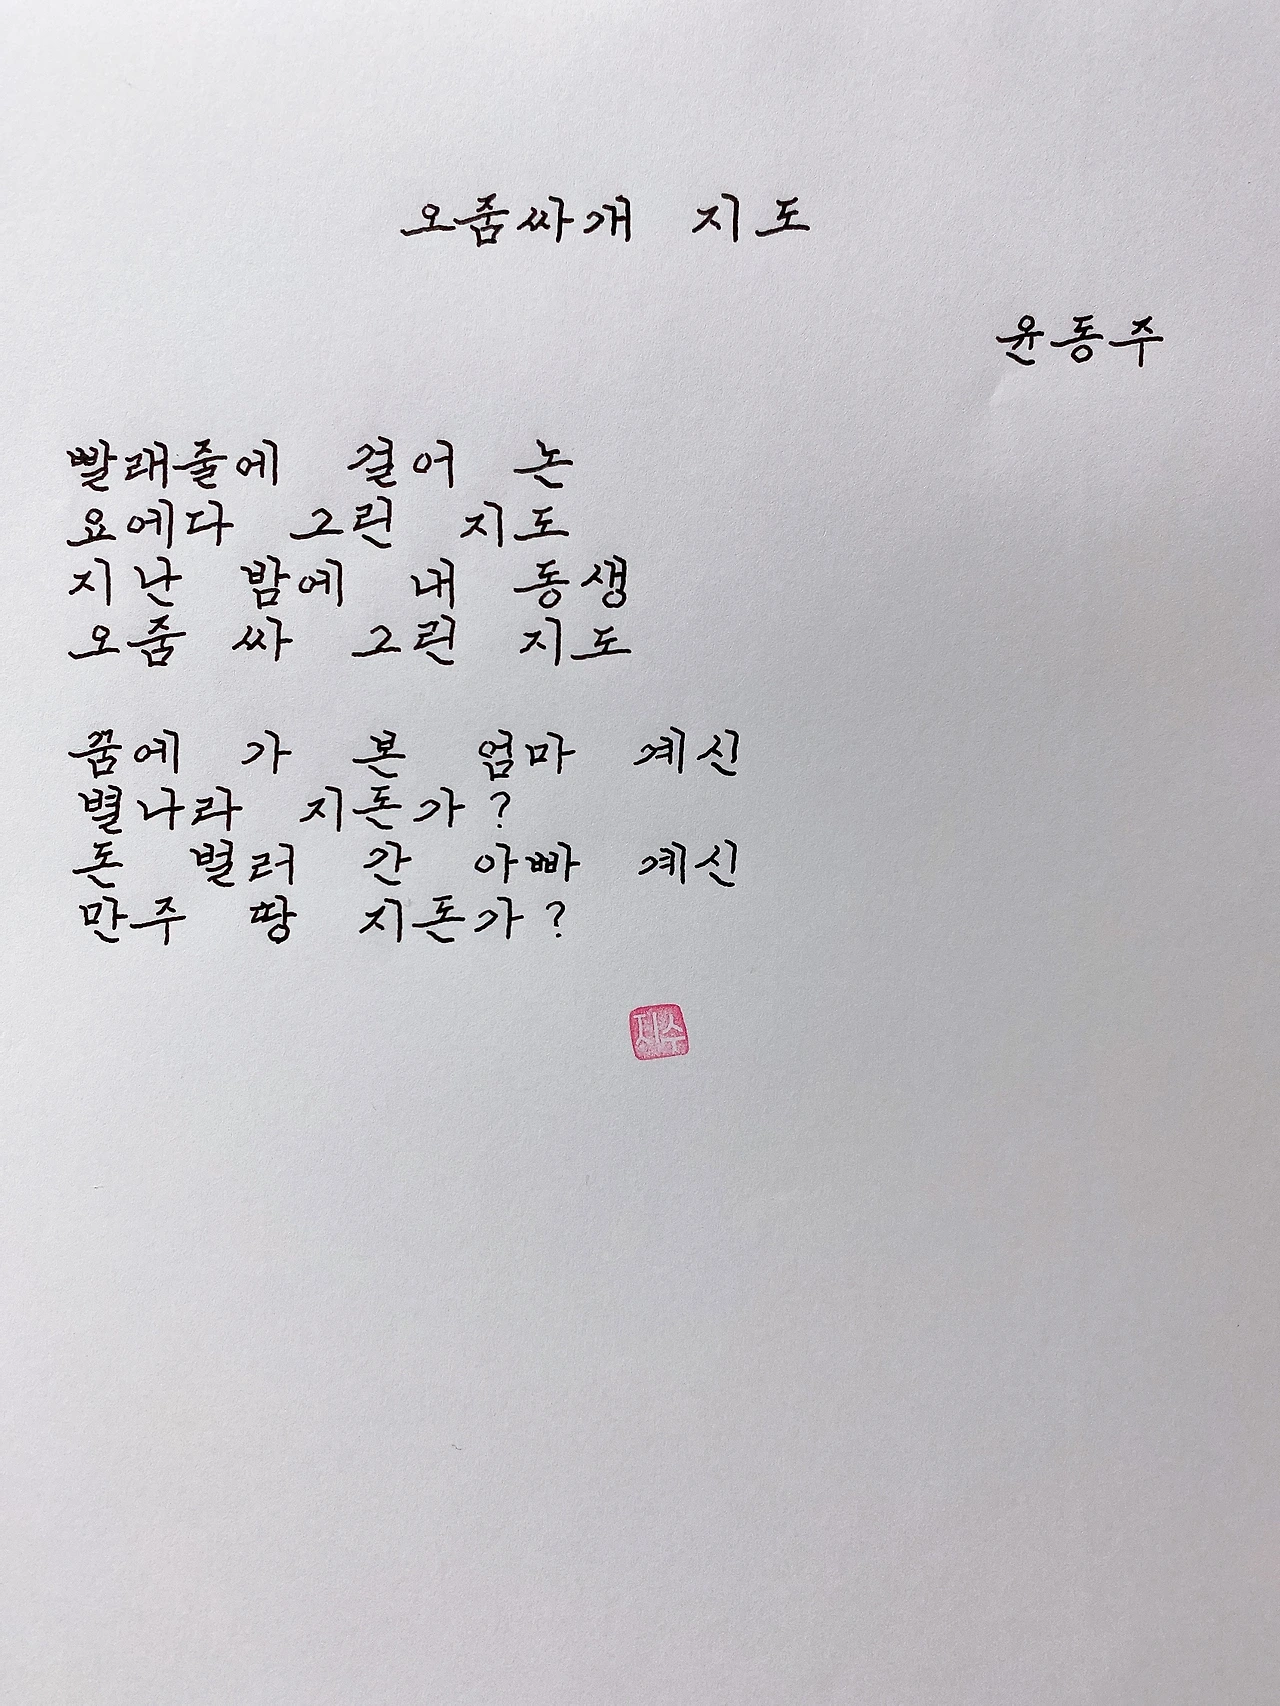 오줌싸개 지도
윤동주
빨래줄에 걸어 논
요에다 그린 지도
지난 밤에 내 동생
오줌 싸 그린 지도
꿈에 가 본 엄마 계신
별나라 지돈가?
돈 벌러 간 아빠 계신
만주 땅 지돈가?
지수